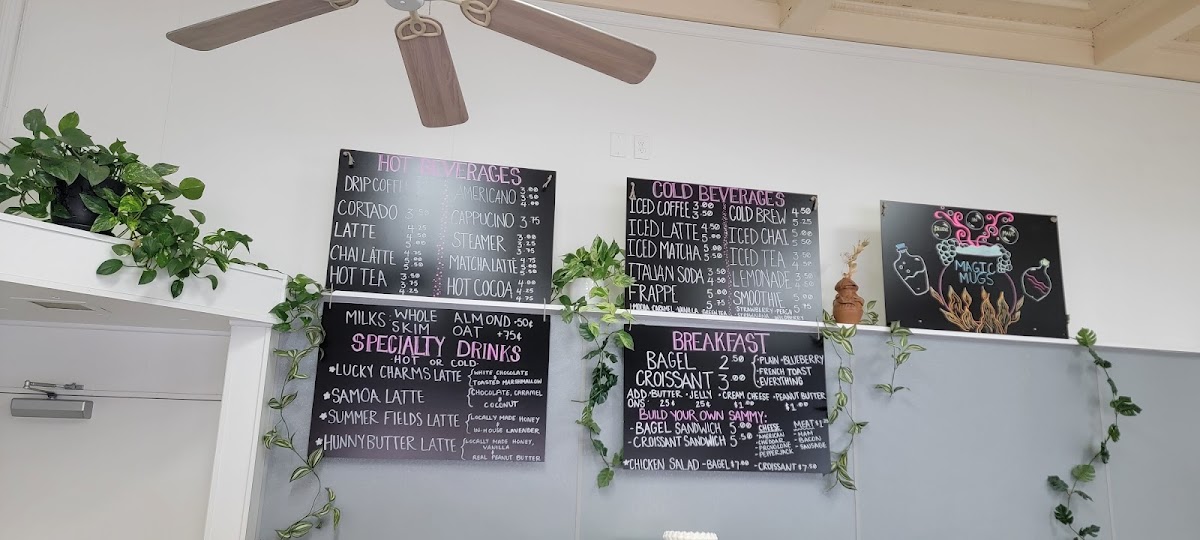 HOT BEVERAGES
DRIP COFFEE
CORTADO 3.50
LATTE 4.25
CHAI LATTE 4.25
HOT TEA 3.50 3.75 4.25
AMERICANO 3.00 3.50 4.00
CAPPUCINO 3.75
STEAMER 3.00 3.25 3.75
MATCHA LATTE
HOT COCOA
COLD BEVERAGES
ICED COFFEE 3.00 3.50
ICED LATTE 4.50 5.00
ICED MATCHA 5.00 5.50
ITALIAN SODA 3.50 4.50
FRAPPE 5.00 5.75
COLD BREW 4.50 5.25
ICED CHAI
ICED TEA
LEMONADE
SMOOTHIE
STRAWBERRY PEACH
MAGIC
MUGS
MILKS: WHOLE ALMOND +50¢
SKIM OAT +75¢
SPECIALTY DRINKS
HOT OR COLD
*LUCKY CHARMS LATTE {WHITE CHOCOLATE
TOASTED MARSHMALLOW
*SAMOA LATTE {CHOCOLATE, CARAMEL
COCONUT
*SUMMER FIELDS LATTE {LOCALLY MADE HONEY
IN-HOUSE LAVENDER
*HUNNYBUTTER LATTE {LOCALLY MADE HONEY,
VANILLA
REAL PEANUT BUTTER
BREAKFAST
BAGEL 2.50 {-PLAIN -BLUEBERRY
CROISSANT 3.00 -FRENCH TOAST
-EVERYTHING
ADD •BUTTER •JELLY •CREAM CHEESE •PEANUT BUTTER
ONS: 25¢ 25¢ $1.00 $1.00
BUILD YOUR OWN SAMMY:
-BAGEL SANDWICH 5.00
-CROISSANT SANDWICH 5.50
CHEESE
*AMERICAN
*CHEDDAR
*PROVOLONE
*PEPPERJACK
MEAT $1
-HAM
-BACON
-SAUSAGE
*CHICKEN SALAD -BAGEL $7.00 -CROISSANT $7.50